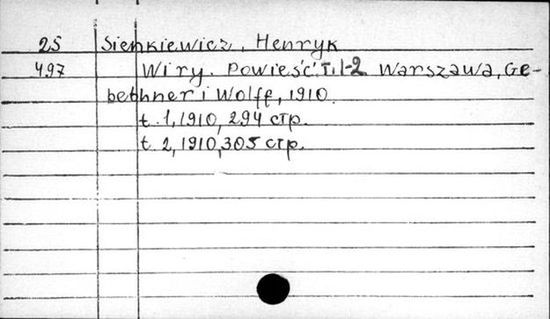 25 Sienkiewicz, Henryk
497 Wiry. Powieść. T. 1-2 Warszawa, Ge-
bethner i Wolff, 1910.
t. 1, 1910, 294 стр.
t. 2, 1910, 305 стр.